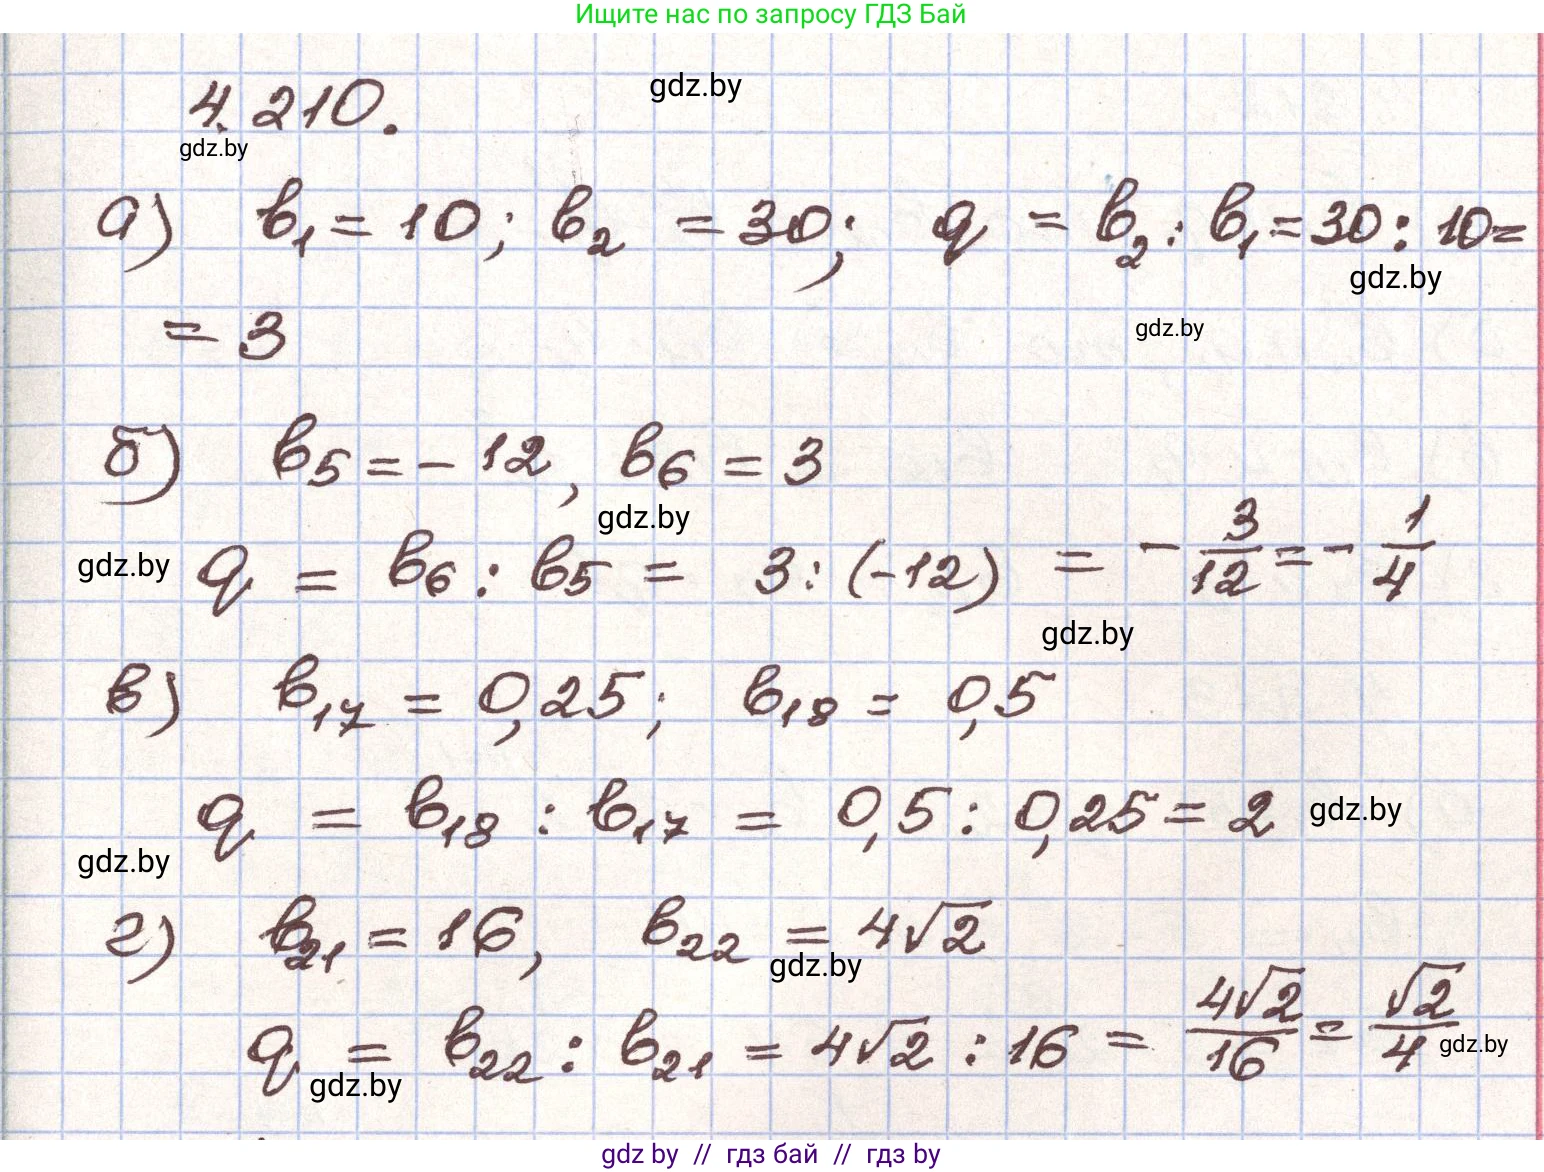 Ищите нас по запросу ГДЗ Бай
gdz.by
4.210.
gdz.by
а) в₁ = 10; в₂ = 30; q = в₂ : в₁ = 30 : 10 =
gdz.by
= 3
gdz.by
б) в₅ = - 12, в₆ = 3
gdz.by
gdz.by
q = в₆ : в₅ = 3 : (-12) = - 3/12 = - 1/4
gdz.by
в) в₁₇ = 0,25; в₁₈ = 0,5
q = в₁₈ : в₁₇ = 0,5 : 0,25 = 2
gdz.by
gdz.by
г) в₂₁ = 16, в₂₂ = 4√2
gdz.by
q = в₂₂ : в₂₁ = 4√2 : 16 = 4√2/16 = √2/4
gdz.by
gdz.by
gdz by // гдз бай // гдз by